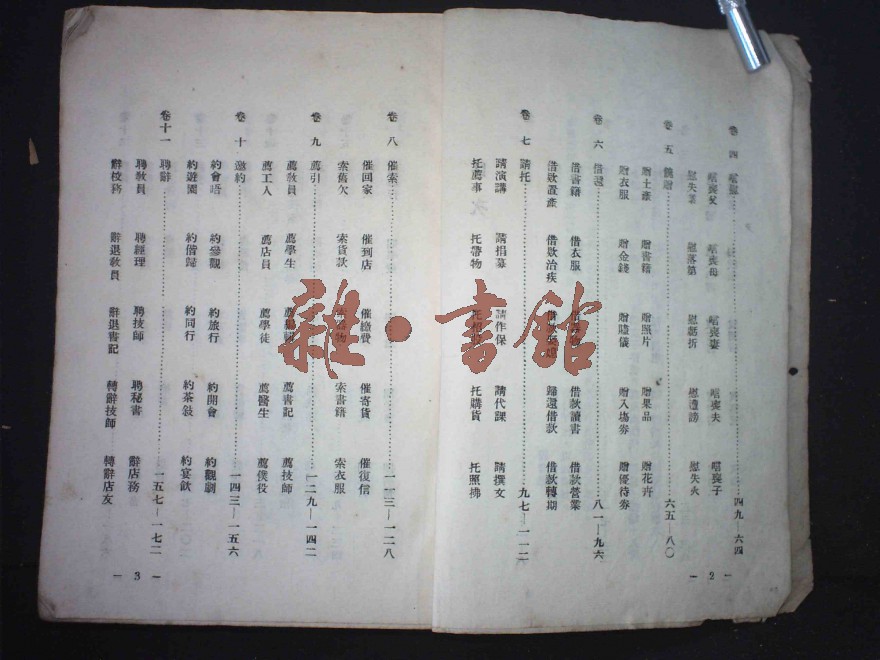 卷四 唁慰………四九—六四
唁喪父 唁喪母 唁喪妻 唁喪夫 唁喪子
慰失業 慰落第 慰 慰遭謗 慰失火
卷五 餽贈………六五—八〇
贈土產 贈書籍 贈照片 贈果品 贈花卉
贈衣服 贈金錢 贈贐儀 贈入場券 贈優待券
卷六 借貸………八一—九六
借書籍 借衣服 借款讀書 借款營業
借款置產 借款治疾 歸還借款 借款轉期
卷七 請托………九七—一一二
請演講 請招募 請作保 請代課 請撰文
托薦事 托帶物 托購貨 托照拂
— 2 —
卷八 催索………一一三—一二八
催回家 催到店 催繳費 催寄貨 催復信
索舊欠 索貨款 索書籍 索衣服
卷九 薦引………一二九—一四二
薦教員 薦學生 薦書記 薦技師
薦工人 薦店員 薦學徒 薦醫生 薦僕役
卷十 邀約………一四三—一五六
約會晤 約參觀 約旅行 約開會 約觀劇
約遊園 約偕歸 約同行 約茶敍 約宴飲
卷十一 聘辭………一五七—一七二
聘教員 聘經理 聘技師 聘秘書 辭店務
辭校務 辭退教員 辭退書記 轉辭技師 轉辭店友
— 3 —
雜·書館